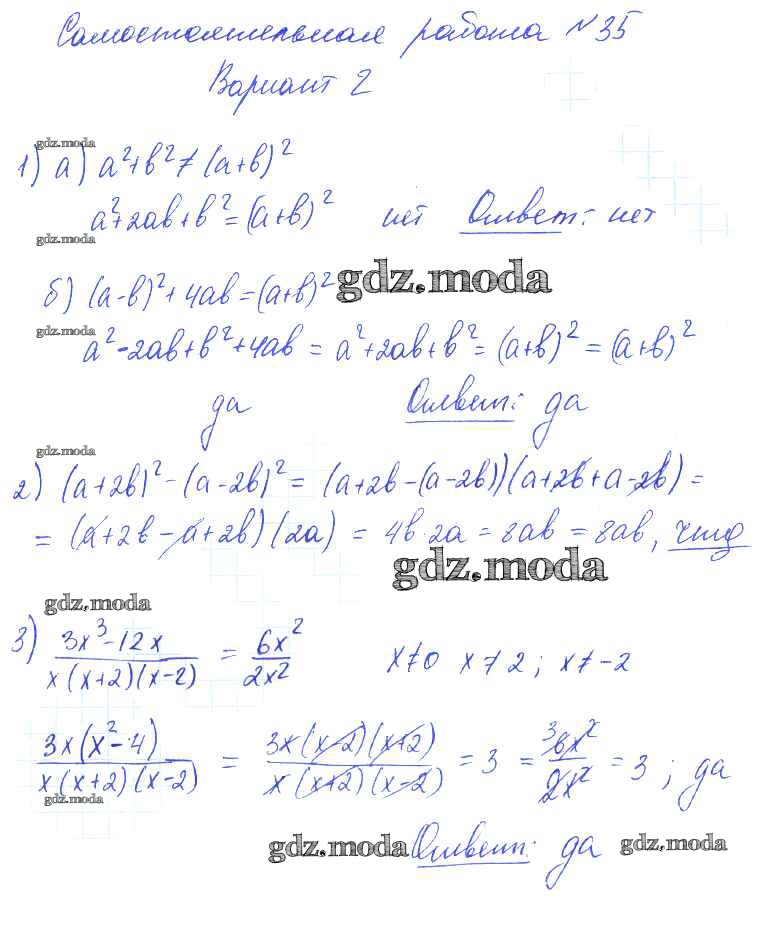 Самостоятельная работа №35
Вариант 2
gdz.moda
1) а) a²+b² ≠ (a+b)²
a²+2ab+b² = (a+b)² нет Ответ: нет
gdz.moda
б) (a-b)²+4ab=(a+b)² gdz.moda
gdz.moda
a²-2ab+b²+4ab = a²+2ab+b² = (a+b)² = (a+b)²
да Ответ: да
gdz.moda
2) (a+2b)²-(a-2b)² = (a+2b-(a-2b))(a+2b+a-2b) =
= (a+2b-a+2b)(2a) = 4b·2a = 8ab = 8ab, чтд
gdz.moda
gdz.moda
3) (3x³-12x)/(x(x+2)(x-2)) = 6x²/2x² x≠0 x≠2; x≠-2
3x(x²-4)/(x(x+2)(x-2)) = 3x(x-2)(x+2)/(x(x+2)(x-2)) = 3 = ³6x²/2x² = 3; да
gdz.moda
gdz.moda Ответ: да gdz.moda